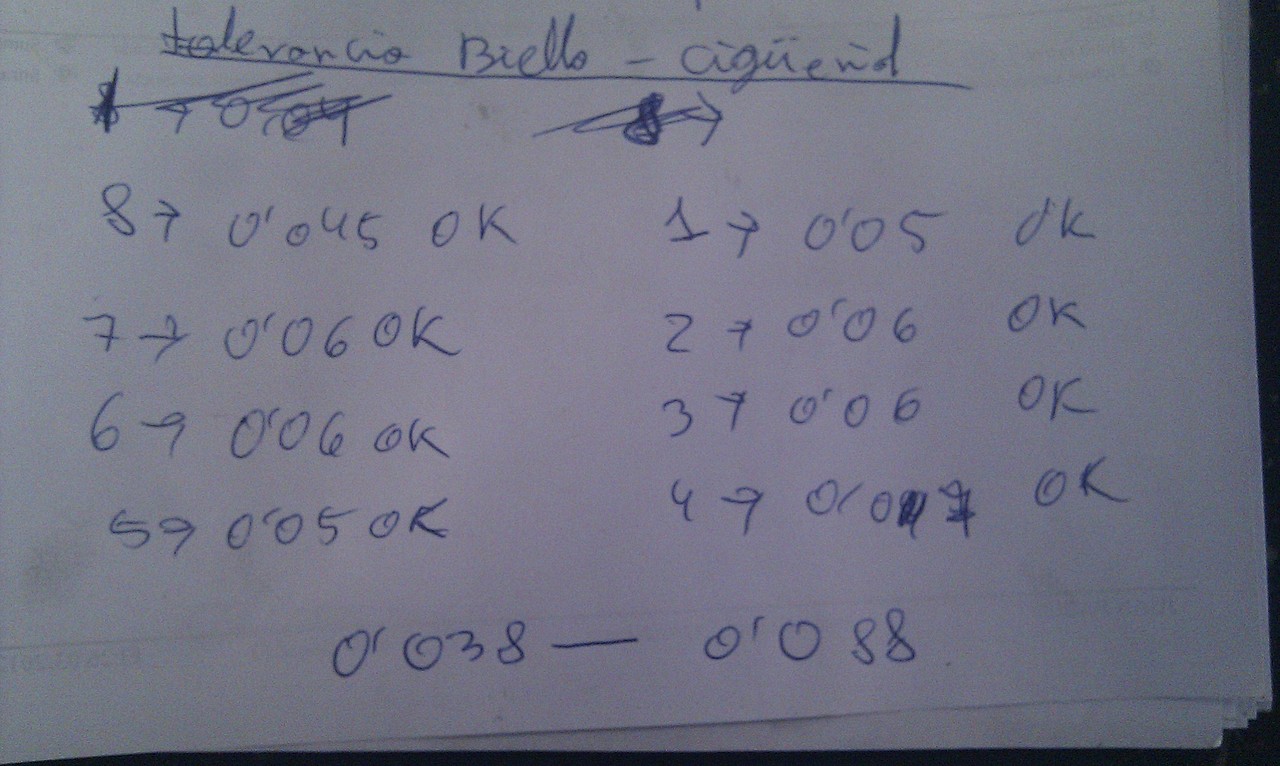 tolerancia Biella - cigüeñal
8 → 0'045 OK 1 → 0'05 OK
7 → 0'06 OK 2 → 0'06 OK
6 → 0'06 OK 3 → 0'06 OK
5 → 0'05 OK 4 → OK
0'038 — 0'088